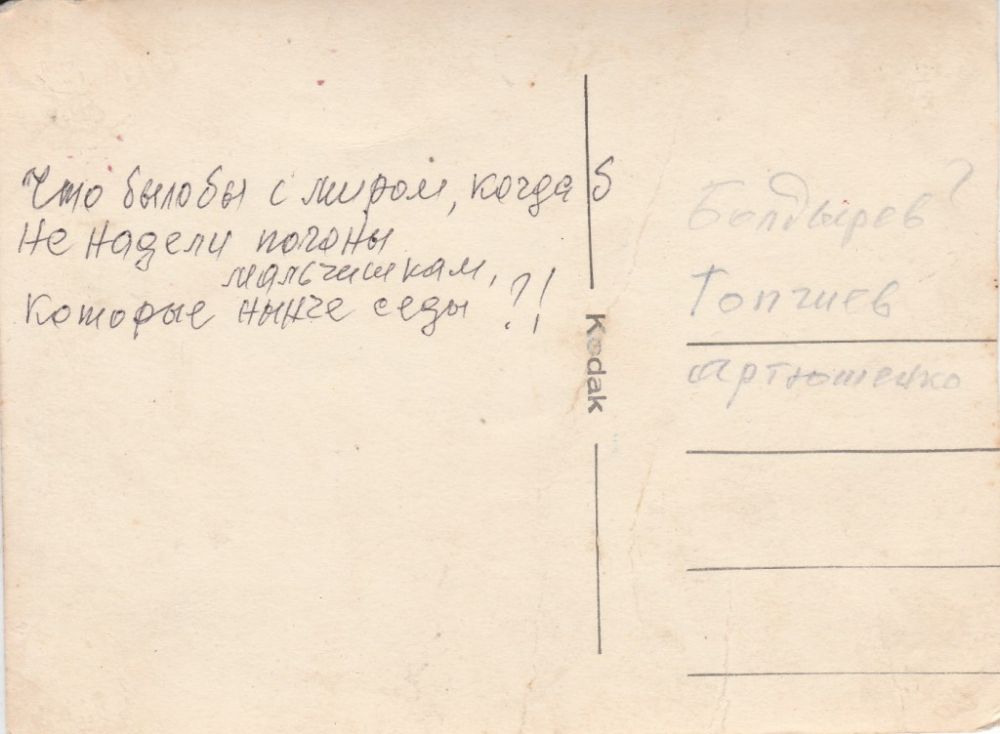 Что было бы с миром, когда б
не надели погоны
мальчишкам,
Которые нынче седы ?!
Kodak
Болдырев ?
Топчиев
Артюшенко